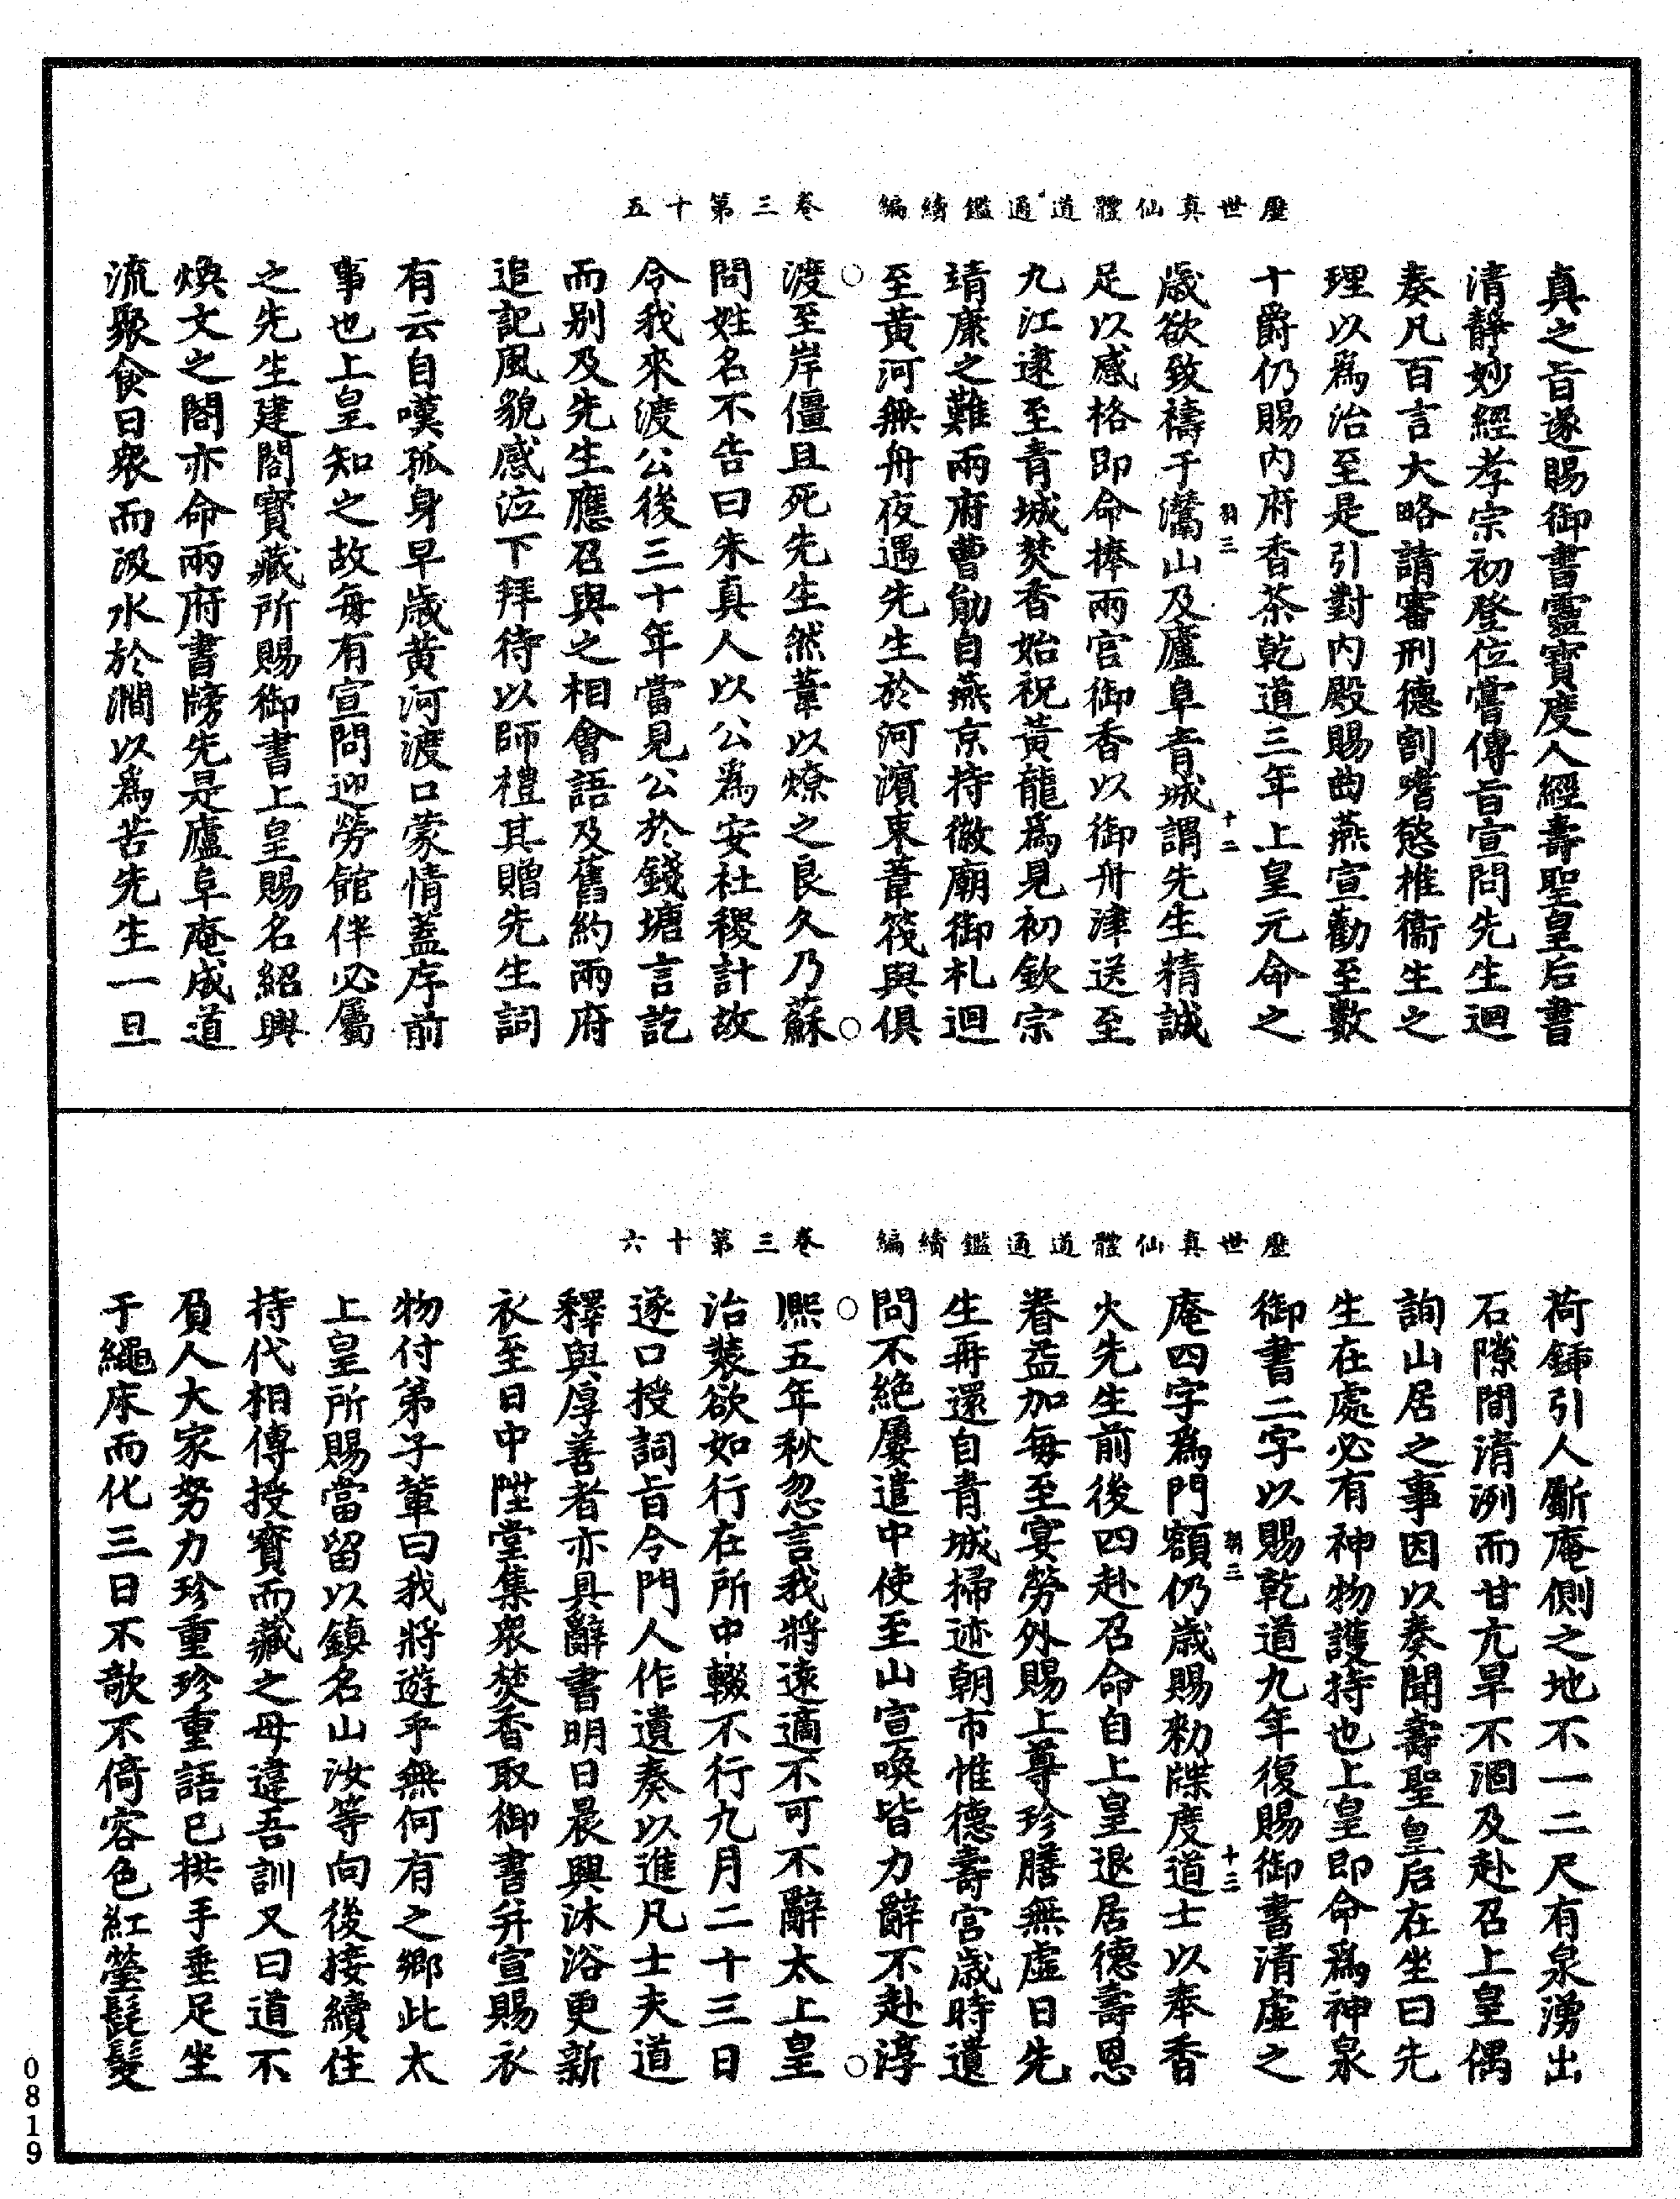 歷世真仙體道通鑑續編　卷三第十五
真之旨遂賜御書靈寶度人經壽聖皇后書
清靜妙經孝宗初登位嘗傳旨宣問先生迴
奏凡百言大略請審刑德割嗜慾推衞生之
理以爲治至是引對内殿賜曲燕宣勸至數
十爵仍賜内府香茶乾道三年上皇元命之
羽三　十二
歲欲致禱于灊山及廬阜青城謂先生精誠
足以感格即命捧兩宮御香以御舟津送至
九江逮至青城焚香始祝黃龍爲見初欽宗
靖康之難兩府曹勛自燕京持徽廟御札迴
至黃河無舟夜遇先生於河濱束葦筏與俱
渡至岸僵且死先生然葦以燎之良久乃蘇
問姓名不告曰朱真人以公爲安社稷計故
令我來渡公後三十年當見公於錢塘言訖
而别及先生應召與之相會語及舊約兩府
追記風貌感泣下拜待以師禮其贈先生詞
有云自嘆孤身早歲黄河渡口蒙情蓋序前
事也上皇知之故每有宣問迎勞館伴必屬
之先生建閣寳藏所賜御書上皇賜名紹興
煥文之閣亦命兩府書牓先是廬阜庵成道
流聚食日衆而汲水於澗以爲苦先生一旦
歷世真仙體道通鑑續編　卷三第十六
荷鍤引人斸庵側之地不一二尺有泉湧出
石隙間清洌而甘亢旱不涸及赴召上皇偶
詢山居之事因以奏聞壽聖皇后在坐曰先
生在處必有神物護持也上皇即命爲神泉
御書二字以賜乾道九年復賜御書清虛之
羽三　十三
庵四字爲門額仍歲賜勑牒度道士以奉香
火先生前後四赴召命自上皇退居德壽恩
眷益加每至宴勞外賜上尊珍膳無虛日先
生再還自青城掃迹朝市惟德壽宮歲時遣
問不絶屢遣中使至山宣喚皆力辭不赴淳
熙五年秋忽言我將遠適不可不辭太上皇
治裝欲如行在所中輟不行九月二十三日
遂口授詞旨令門人作遺奏以進凡士夫道
釋與厚善者亦具辭書明日晨興沐浴更新
衣至日中陞堂集衆焚香取御書并宣賜衣
物付弟子輩曰我將遊乎無何有之鄉此太
上皇所賜當留以鎮名山汝等向後接續住
持代相傳授寳而藏之毋違吾訓又曰道不
負人大家努力珍重珍重語已拱手垂足坐
于繩床而化三日不欹不倚容色紅瑩髭髮
0819